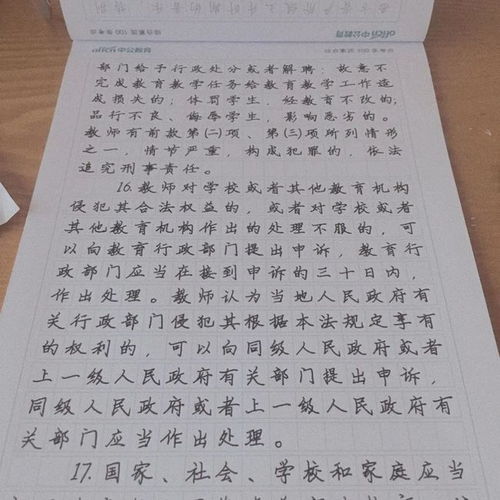 offcn中公教育
部门给予行政处分或者解聘：故意不
完成教育教学任务给教育教学工作造
成损失的；体罚学生，经教育不改的；
品行不良、侮辱学生，影响恶劣的。
教师有前款第(二)项、第(三)项所列情形
之一，情节严重，构成犯罪的，依法
追究刑事责任。
16.教师对学校或者其他教育机构
侵犯其合法权益的，或者对学校或者
其他教育机构作出的处理不服的，可
以向教育行政部门提出申诉，教育行
政部门应当在接到申诉的三十日内，
作出处理。教师认为当地人民政府有
关行政部门侵犯其根据本法规定享有
的权利的，可以向同级人民政府或者
上一级人民政府有关部门提出申诉，
同级人民政府或者上一级人民政府有
关部门应当作出处理。
17.国家、社会、学校和家庭应当